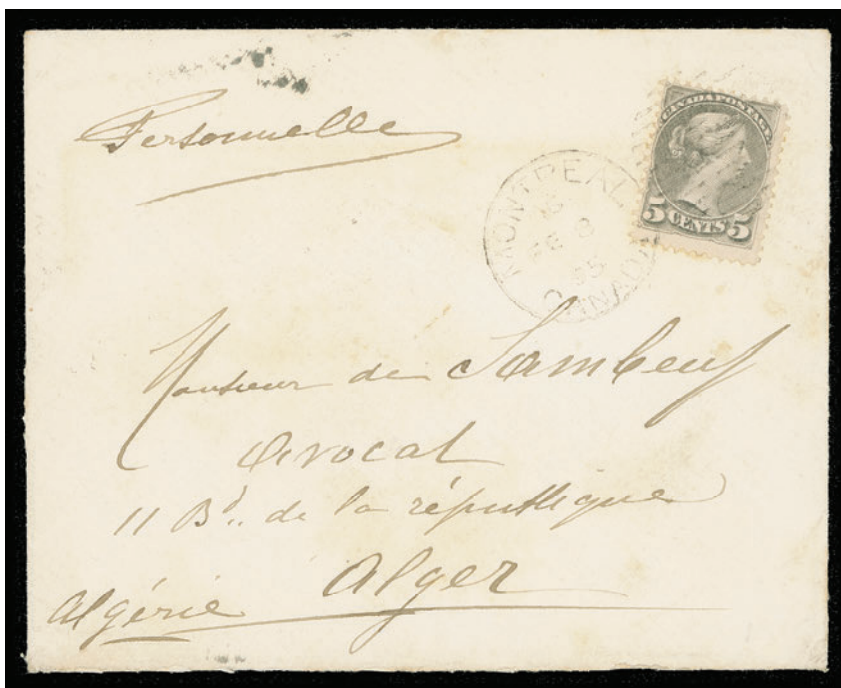 Personnelle
CANADA POSTAGE
5 CENTS 5
MONTREAL
CANADA
Monsieur de Sambeuf
avocat
11 Bd. de la république
Alger
Algérie